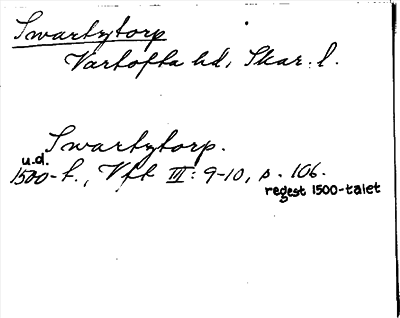 Swartytorp
Vartofta hd, Skar. l.
Swartytorp.
u.d.
1500-t., Vft III: 9-10, s. 106.
regest 1500-talet